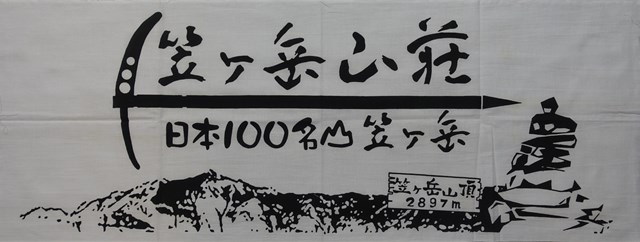 笠ヶ岳山荘
日本100名山 笠ヶ岳
笠ヶ岳山頂
2897m